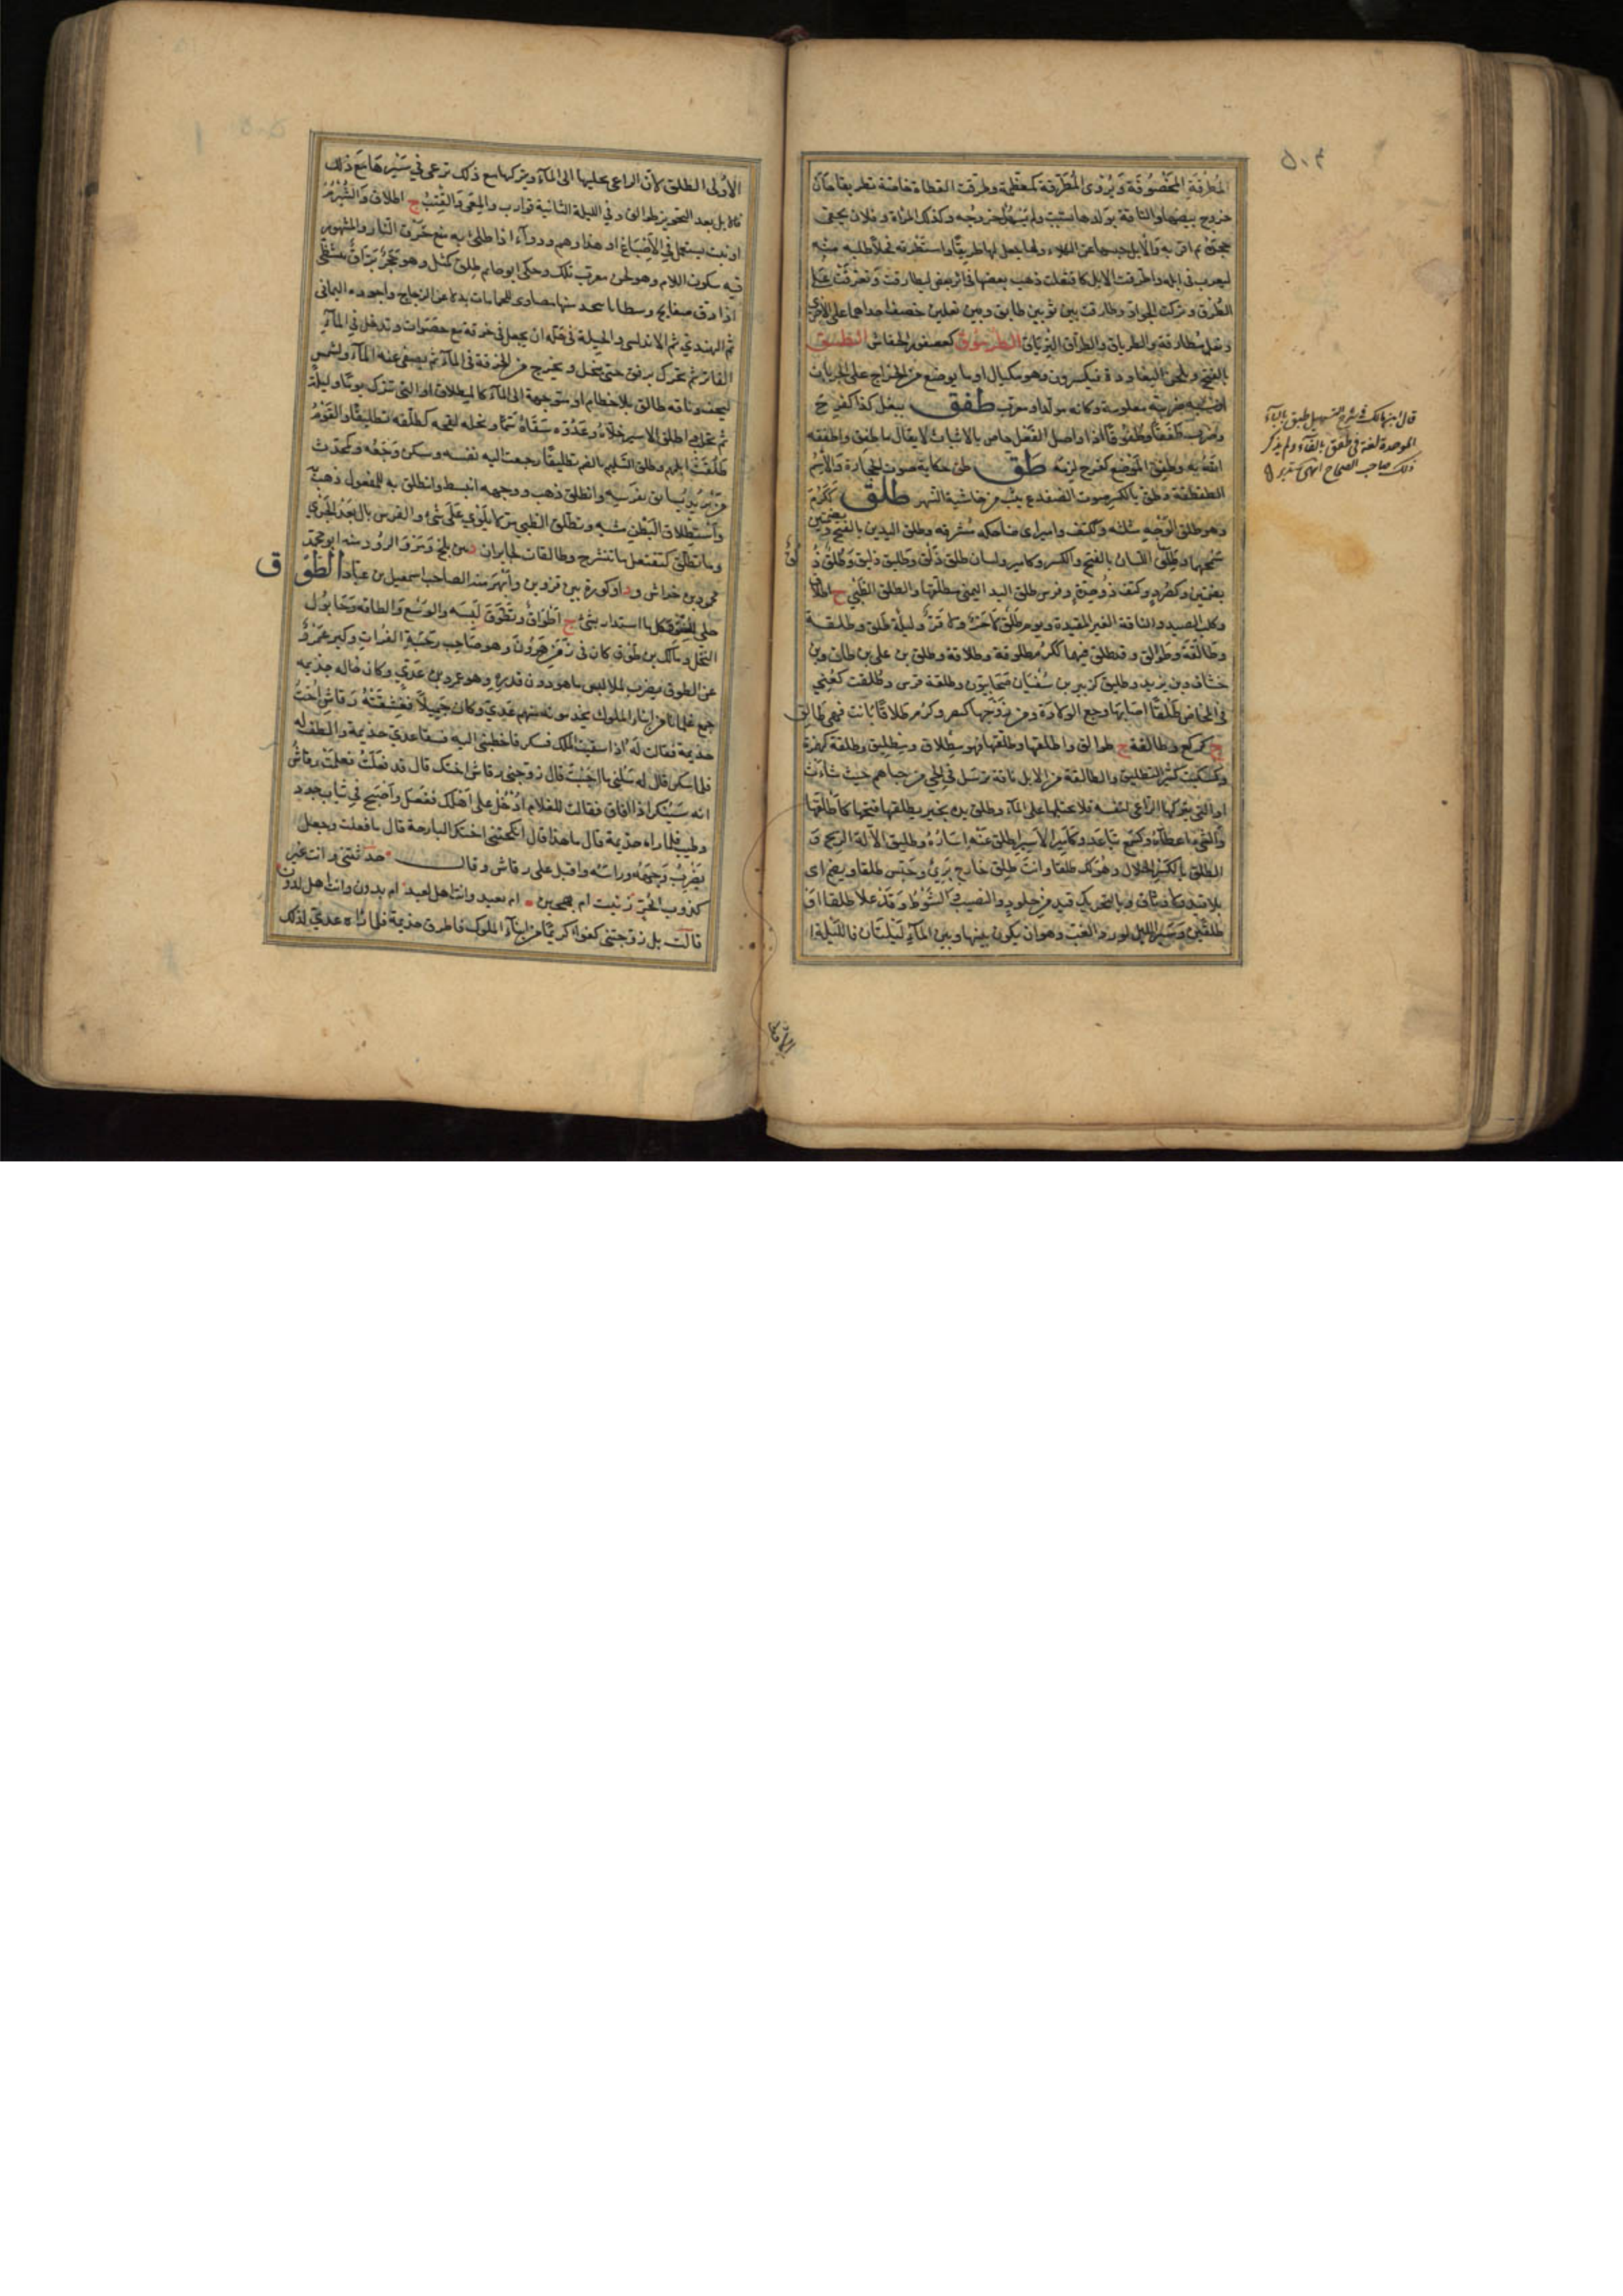 ٥٠٤
المُطرَّقَةِ المَخْصُوفَة وَيُرْوَى المُطَرَّقة كمعَظّمة وطرّقت القطاة خاصّة تطريقا حان
خروج بيضها والناقة بولدها نشبت ولم يَسْهُل خروجه وكذلك المرأة وفلان بحقى
جحَده ثم اقر به والابل حبسها عن الكلاء ولها جعل لها طريقًا واستَطْرقه فحلا طلبه منه
ليضرب في ابله واطّرقت الابل كافتعلت ذهب بعضها في اثر بعض
الطُرُق وتركت الجوادّ وطارق بين ثوبين طابق وبين نعلين خصف احداهما على الاخرى
ونعل مُطارقة والطرياق والطِرّاق التِرياق الطَرموق كعصفور الخفاش الطسق
بالفتح ويلحن البغاددة فيكسرون وهو مكيال او ما يوضع من الخراج على الجربان
او شبه ضريبة معلومة وكانه مولد او معرب طفق يفعل كذا كفرح
وضرب طَفَقًا وطُفُوقًا اذا واصل الفَعْل خاص بالاثبات لا يقال ما طفق واطفقه
الله به وطفق الموضع كفرح لزمه طَق طق حكاية صوت الحجارة والاسم
الطقطقة وطق بالكسر صوت الضفدع يثب من حاشية النهر طلق ككَرُمَ
وهو طلق الوَجْهِ مثلثه وككتف وامير اى ضاحكه مُشرقه وطلق اليدين بالفتح وبضمتين
سَمْحهما وطلق اللسان بالفتح والكسر وكامير ولسان طلق ذلق وطليق ذليق وَطُلُق ذُلُق
بضمتين وكصُرَدٍ وكتف ذو حِدّةٍ وفرس طلق اليد اليمنى مطلقها والطلق الظبي ج اطلاق
وكلب الصيد والناقة الغير المقيدة ويوم طَلْق لا حَرَّ ولا قَرّ وليلة طلق وطلقة
وطالِقَة وطوالق وقد طلق فيهما ككرُم طلوقة وطلاقة وطلق بن علي بن طلق وبن
خشاف وبن يزيد وطليق كزبير بن سُفْيَان صحابيّون وطلقة فرس وطُلقت كعُنِي
في المخاض طَلْقًا اصابها وجع الولادة ومن زوجها كنصر وكرُم طلاقًا بانت فهي طالق
ج كركع وطالقة ج طوالق واطلقها وطلّقها فهو مطلاق ومِطليق وطلقة كهمزة
وكسكيت كثير التطليق والطالقة من الابل ناقة ترسل في الحي من جنابهم حيث شاءت
او التي يتركها الراعي لنفسه فلا يحتلبها على الماء وطلق يده بخير يطلقها فتحها كاَطْلَقَها
والشيء اعطاه وكسَمِع تباعد وكاَمير الاسير اطلق عنه اساره وطليق الاله الريح وَ
الطلق بالكسر الحلال وهو لك طلقا وانت طلق خارج بَرِيٌّ وحُبِس طلقا ويضم اى
بلا قيد ولا وثاق وبالتحريك قيد من جلود والنصيب والشَوْط وَقد عدا طلقا اوْ
طلقين وسير الليل لورد الغبّ وهو ان يكون بينها وبين الماء ليلتان فالليلة ا
قال ابن مالك في شرح التسهيل طبق بالباء
الموحدة لغة في طفق بالفاء ولم يذكر
ذلك صاحب الصحاح انتهى
الاولى
الاُولى الطلق لان الراعي يخليها الى الماء ويتركها مع ذلك ترعى في سَيْرها مَع ذلك
فالابل بعد التحويز طوالق وفي الليلة الثانية قوارب والمِعَى والقِتب ج اطلاق والشُبْرُم
او نبت يستعمل في الاَصْبَاغ او هذا وهم ودواء اذا طلي به منع حَرْق النار والمشهور
فيه سكون اللام وهو لحن معرب تلك وحكى ابو حاتم طِلْق كمثل وهو حَجَرٌ بَرّاق يتشظّى
اذا دق صفايح وشظايا يتخذ منها مضاوي للحمامات بدلا عن الزجاج واجوده اليماني
ثم الهندي ثم الاندلسي والحيلة في حَلّه ان يجعل في خرقة مع حصَوات وتدخل في الماء
الفاتر ثم تحرك برفق حتى ينحل ويخرج من الخرقة في الماء ثم يصفى عنه الماء ويشمس
ليجف وناقة طالق بلا خطام او متوجهة الى الماء كالمطلاق او التي تترك يوما وليلة
ثم تحلب واطلق الاسير خلاه وعَدُوَّه سَقاهُ سَمًّا ونخله لقحه كطلّقه تطليقًا والقَوْمُ
طلقت ابلهم وطُلِّق السَليم بالضم تطليقًا رجعت اليه نفسه وسكن وَجَعُه وكمحَدِّث
مَن يُريد يُسابق بفرَسِه وانطلق ذهب ووجهه انبسط وانطُلق به للمفعول ذهب به
واستطلاق البَطْنِ مشيه وتطلّق الظبي مَرّ لا يَلْوِي عَلى شَيْء والفرس بال بَعْدَ الجَرْي
وما تطّلق نفسه كتفتعل ما تنشرح وطالقان كخابران د بين بلخ وَمَرْو الرُوذ منه ابو محمد
محمود بن خداش ود او كورة بين قزوين وَاَبْهَر منه الصاحب اسمعيل بن عباد الطَوْق
حلي للعنق وكل ما استدار بشيء ج اَطْوَاق وتطَوّق لَبِسَه والوَسْع والطاقة وحَابُول
النخل ومالك بن طَوْق كان في زمَن هَرُونَ وهو صاحب رحبة الفرات وكبر عَمْرٌو
عن الطوق يضرب لملابس ما هو دون قدره وهو عمرو بن عَدِيّ وكان خاله جذيمه
جمع غلمانا من ابناء الملوك يخدمونه منهم عَدِيّ وكان جَميلاً فعَشِقَتْهُ رَقاش اُختُ
جذيمة فقالت لَهُ اذا سقيت الملك فسكر فاخطبني اليه فسقا عدي جذيمة والطف له
فلما سكر قال له سَلْني ما احبَبْت قال زوجني رقاش اختك قال قد فعَلتُ فعلمت رقاش
انه سَيُنكِر اذا افاق فقالت للغلام اُدْخُل على اَهْلك ففعل واَصْبح في ثياب جدد
وطيب فلما راه جذيمة قال ما هذا قال انكحتني اختك البارحة قال ما فعلت وجعل
يَضْرِبُ وَجهَهُ وراسَه واقبل على رقاش وقال حدثيني وانت غير
كذوب اَبِحُرٍّ زنيت ام بهجين ام بعبد وانت اهل لعبد ام بدون وانت اهل لدون
قالت بل زوجتني كفؤا كريمًا من ابناء الملوك فاطرق جذيمة فلما رآه عديّ لذلك